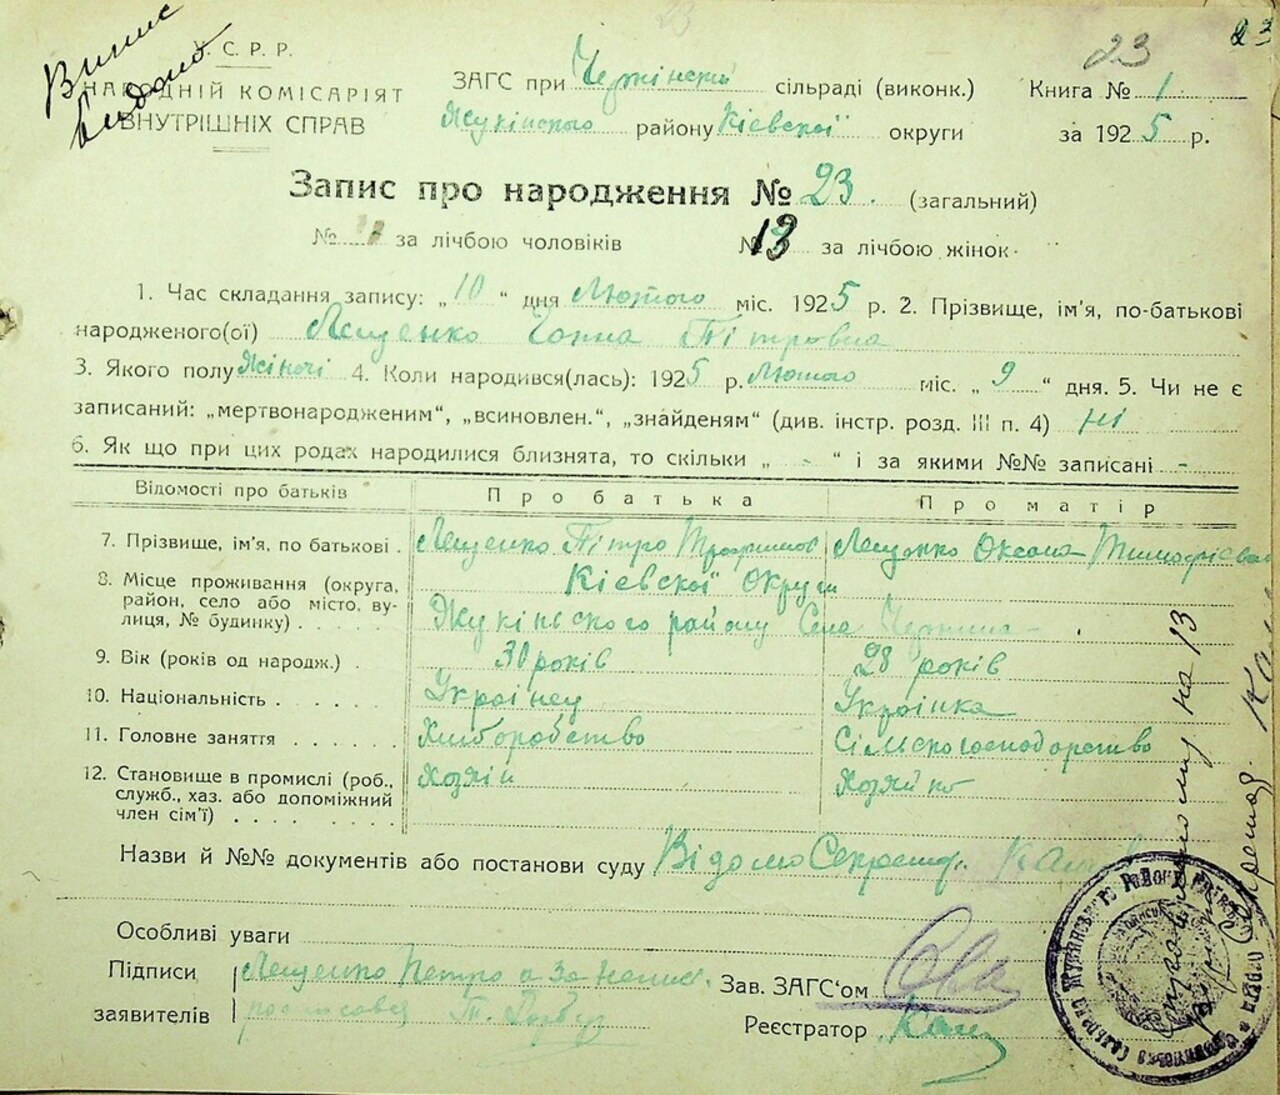 23
23
Випис
видано
У.С.Р.Р.
НАРОДНІЙ КОМІСАРІЯТ
ВНУТРІШНІХ СПРАВ
ЗАГС при сільраді (виконк.) Книга № 1
Жукінского району Кіевскоï округи за 1925 р.
Запис про народження № 23. (загальний)
№ за лічбою чоловіків № 13 за лічбою жінок
1. Час складання запису: „10“ дня Лютого міс. 1925 р. 2. Прізвище, ім'я, по-батькові
народженого(ої) Лещенко Ганна Пітровна
3. Якого полу Жіночі 4. Коли народився(лась): 1925 р. Лютого міс. „9“ дня. 5. Чи не є
записаний: „мертвонародженим“, „всиновлен.“, „знайденям“ (див. інстр. розд. III п. 4) ні
6. Як що при цих родах народилися близнята, то скільки „ - “ і за якими №№ записані -
Відомості про батьків Про батька Про матір
7. Прізвище, ім'я, по батькові . Лещенко Пітро Лещенко Оксана
8. Місце проживання (округа, район, село або місто, вулиця, № будинку) . . . . . Кіевскоï Округи
Жукінського району Села
9. Вік (років од народж.) . 30 років 28 років
10. Національність . . . . . . Украінец Украінка
11. Головне заняття . . . . . . Хліборобство Сільскогосподарство
12. Становище в промислі (роб., служб., хаз. або допоміжний член сім'ї) . . . . . . . . Хозяін Хозяйка
Назви й №№ документів або постанови суду Відомо Секретар.
Особливі уваги
Підписи Лещенко Петро а за
заявителів росписовся
Зав. ЗАГС'ом
Реєстратор
на 13